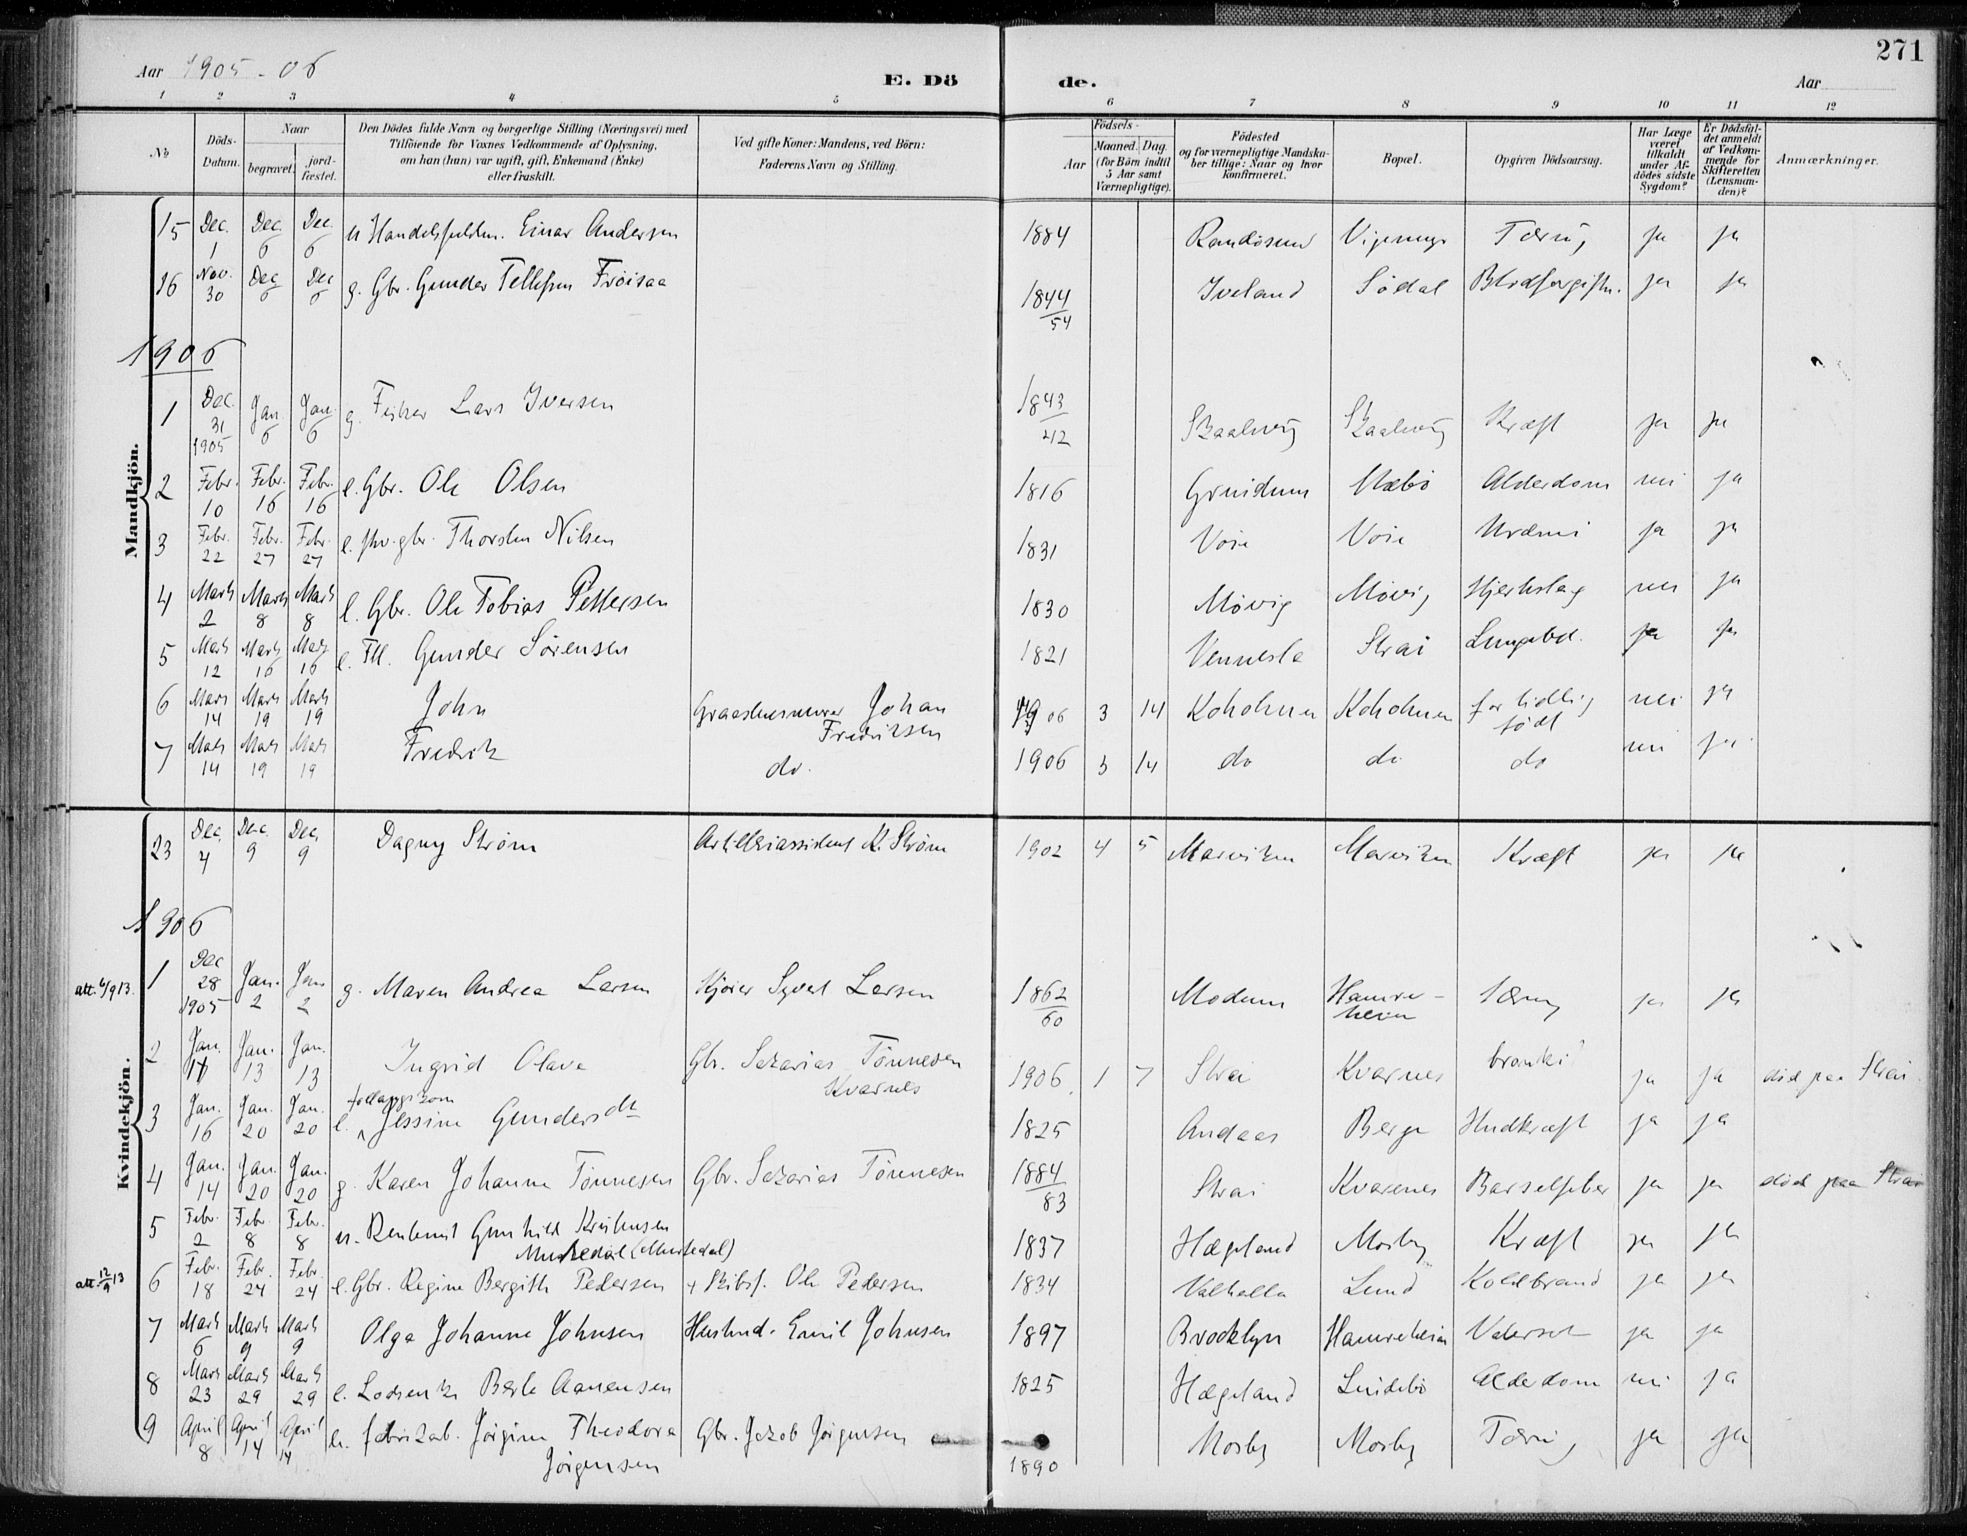 271
Aar 1905-06
E. Dö
de.
Aar
1 2 3 4 5 6 7 8 9 10 11 12
No
Döds-Datum.
Naar
begravet.
jord-fæstet.
Den Dödes fulde Navn og borgerlige Stilling (Næringsvei) med
Tilföiende for Voxnes Vedkommende af Oplysning,
om han (hun) var ugift, gift, Enkemand (Enke)
eller fraskilt.
Ved gifte Koner: Mandens, ved Börn:
Faderens Navn og Stilling.
Födsels-
Aar
Maaned. Dag.
(for Börn indtil
5 Aar samt
Værnepligtige).
Födested
og for værnepligtige Mandska-
ber tillige: Naar og hvor
konfirmeret.
Bopæl.
Opgiven Dödsaarsag.
Har Læge
været
tilkaldt
under Af-
dödes sidste
Sygdom?
Er Dödsfal-
det anmeldt
af Vedkom-
mende for
Skifteretten
(Lensman-
den)?
Anmærkninger.
Mandkjön.
15 Dec. 1 Dec. 6 Dec. 6 Einar Andersen 1884 Randøsund Tæring ja ja
16 Nov. 30 Dec 6 Dec 6 g. Gbr. Gunder Tellefsen Frøisaa 1844/54 Iveland Sødal Blodforgiftn. ja ja
1906
1 Dec. 31 1905 Jan. 6 Jan. 6 g. Fisker Lars Iversen 1843/42 Skaalevig Skaalevig Kræft ja ja
2 Febr. 10 Febr. 16 Febr. 16 e. Gbr. Ole Olsen 1816 Grindum Mæbø Alderdom nei ja
3 Febr. 22 Febr. 27 Febr. 27 e. fhv. gbr. Thorsten Nilsen 1831 Voie Voie Uræmi ja ja
4 Marts 2 Marts 8 Marts 8 e. Gbr. Ole Tobias Pettersen 1830 Møvig Møvig Hjerteslag nei ja
5 Marts 12 Marts 16 Marts 16 e. Fll. Gunder Sørensen 1821 Vennesla Strai Lungebet. ja ja
6 Mars 14 Marts 19 Marts 19 John Graastensmurer Johan Fredriksen 1906 3 14 Kokolmen Kokolmen for tidlig født nei ja
7 Mars 14 Mars 19 Mars 19 Fredrik do. 1906 3 14 do do do nei ja
Kvindekjön.
23 Dec. 4 Dec. 9 Dec. 9 Dagny Strøm Artilleriassistent K. Strøm 1902 4 5 Marviken Marviken Kræft ja ja
1906
att. 4/9 13. 1 Dec 28 1905 Jan. 2 Jan 2 g. Maren Andrea Larsen Kjører Syvert Larsen 1862/60 Modum Hamre-heim Tæring ja ja
2 Jan. 11 Jan. 13 Jan. 13 Ingrid Olava Gbr. Sakarias Tønnesen Kvarnes 1906 1 7 Strai Kvarnes bronki ja ja død paa Strai.
3 Jan. 16 Jan. 20 Jan. 20 e. follaugskone Jessine Gundersdt 1825 Andaas Berge Hudkræft ja ja
4 Jan. 14 Jan. 20 Jan. 20 g. Karen Johanne Tønnesen Gbr. Sakarias Tønnesen 1884/83 Strai Kvarenes Barselfeber ja ja død paa Strai
5 Febr. 2 Febr. 8 Febr. 8 u. Gunhild Kristensen Mushedal (Mushedal) 1837 Hægeland Mosby Kræft ja ja
att. 12/9 13 6 Febr. 18 Febr. 24 Febr. 24 e. Gbr. Regine Bergith Pedersen + Skibsf. Ole Pedersen 1834 Valhalla Lund Koldbrand ja ja
7 Marts 6 Marts 9 Marts 9 Olga Johanne Johnsen Husmd. Emil Johnsen 1897 Brooklyn Hamreheim Vatersot ja ja
8 Mars 23 Marts 29 Marts 29 e. Lodsenke Berte Aanensen 1825 Hægeland Lindebø Alderdom nei ja
9 April 8 April 14 April 14 u. fabrikarb. Jørgine Theodora Jørgensen Gbr. Jakob Jørgensen 1890 Mosby Mosby Tæring ja ja